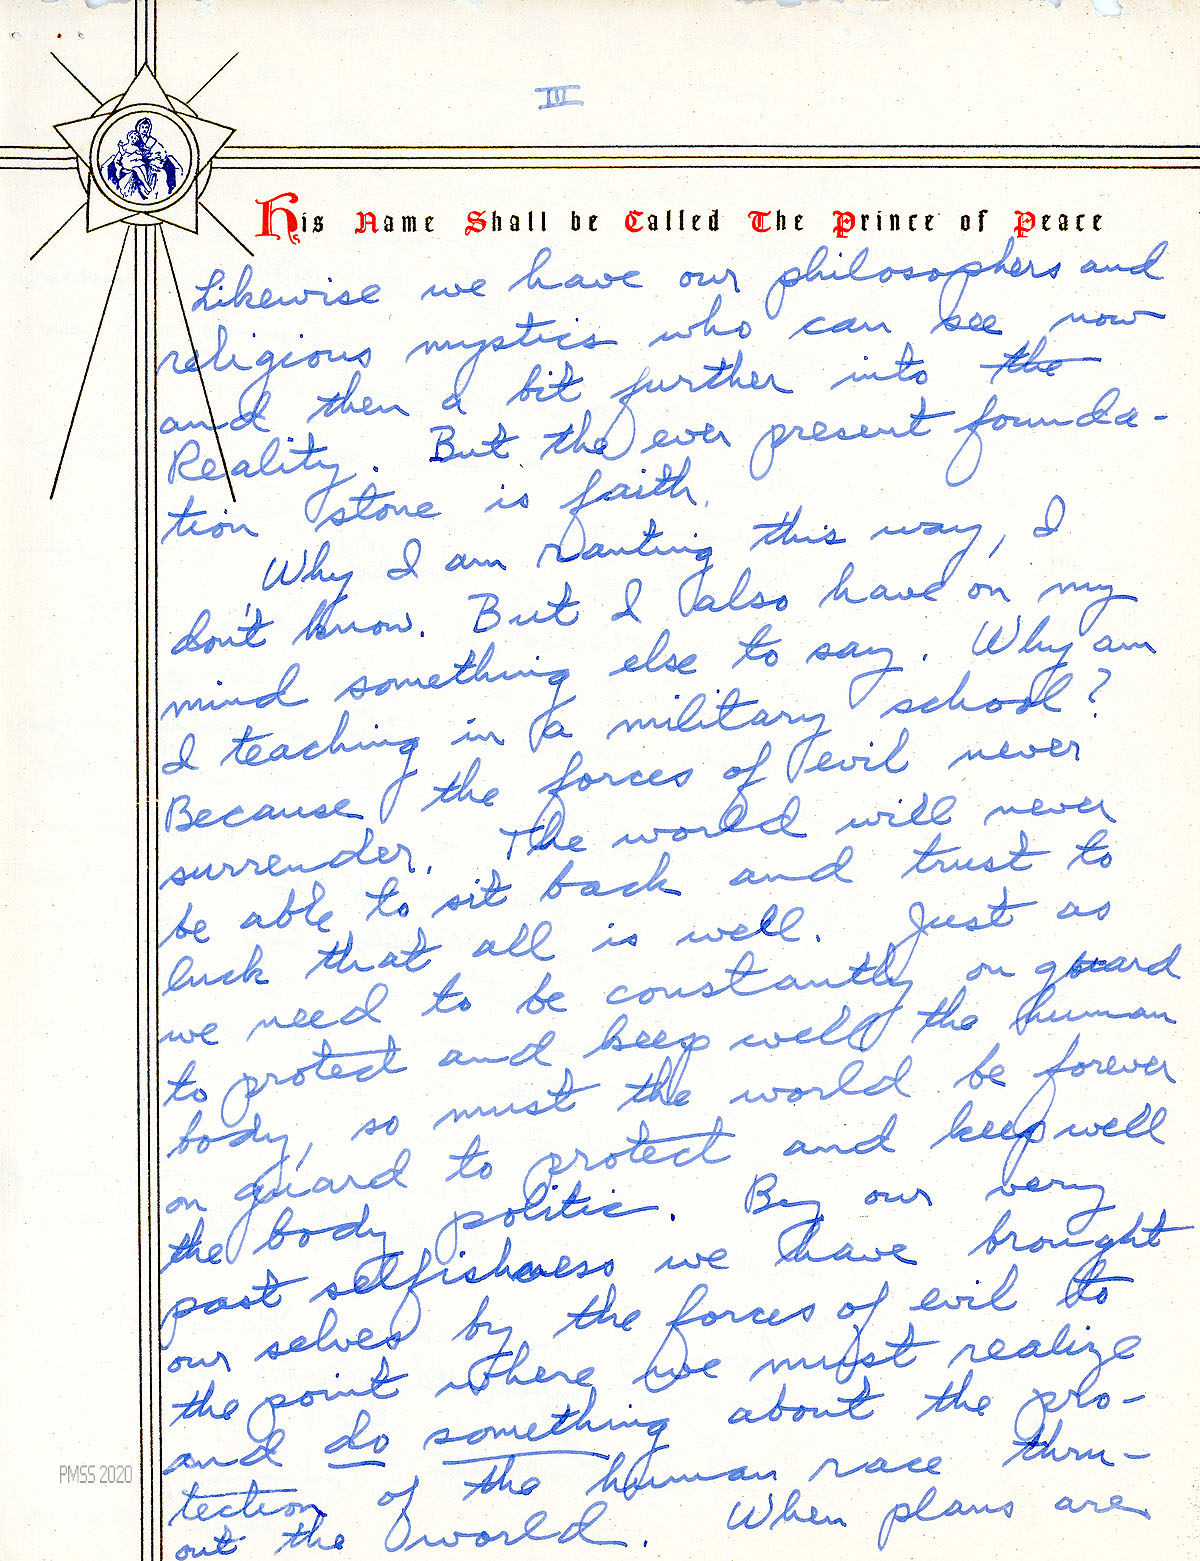 III
His Name Shall be Called The Prince of Peace
Likewise we have our philosophers and
religious mystics who can see now
and then a bit further into the
Reality. But the ever present founda-
tion stone is faith.
Why I am ranting this way, I
don't know. But I also have on my
mind something else to say. Why am
I teaching in a military school?
Because the forces of evil never
surrender. The world will never
be able to sit back and trust to
luck that all is well. Just as
we need to be constantly on guard
to protect and keep well the human
body, so must the world be forever
on guard to protect and keep well
the body politic. By our very
past selfishness we have brought
our selves by the forces of evil to
the point where we must realize
and do something about the pro-
tection of the human race thru-
out the world. When plans are
PMSS 2020